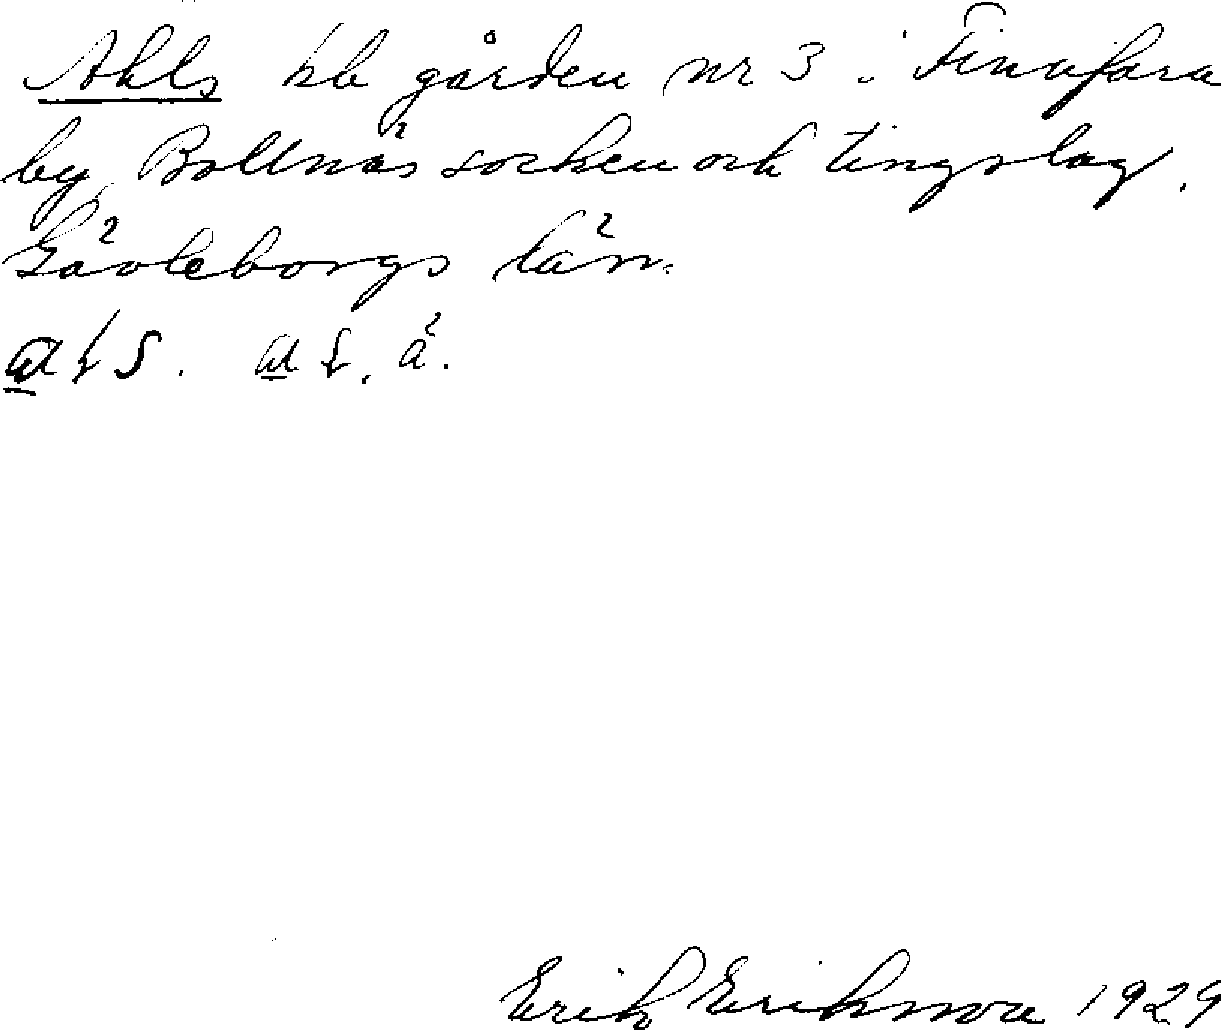 Ahls kb gården nr 3 i Finnfara
by, Bollnäs socken och tingslag.
Gävleborgs län.
Erik Eriksson 1929